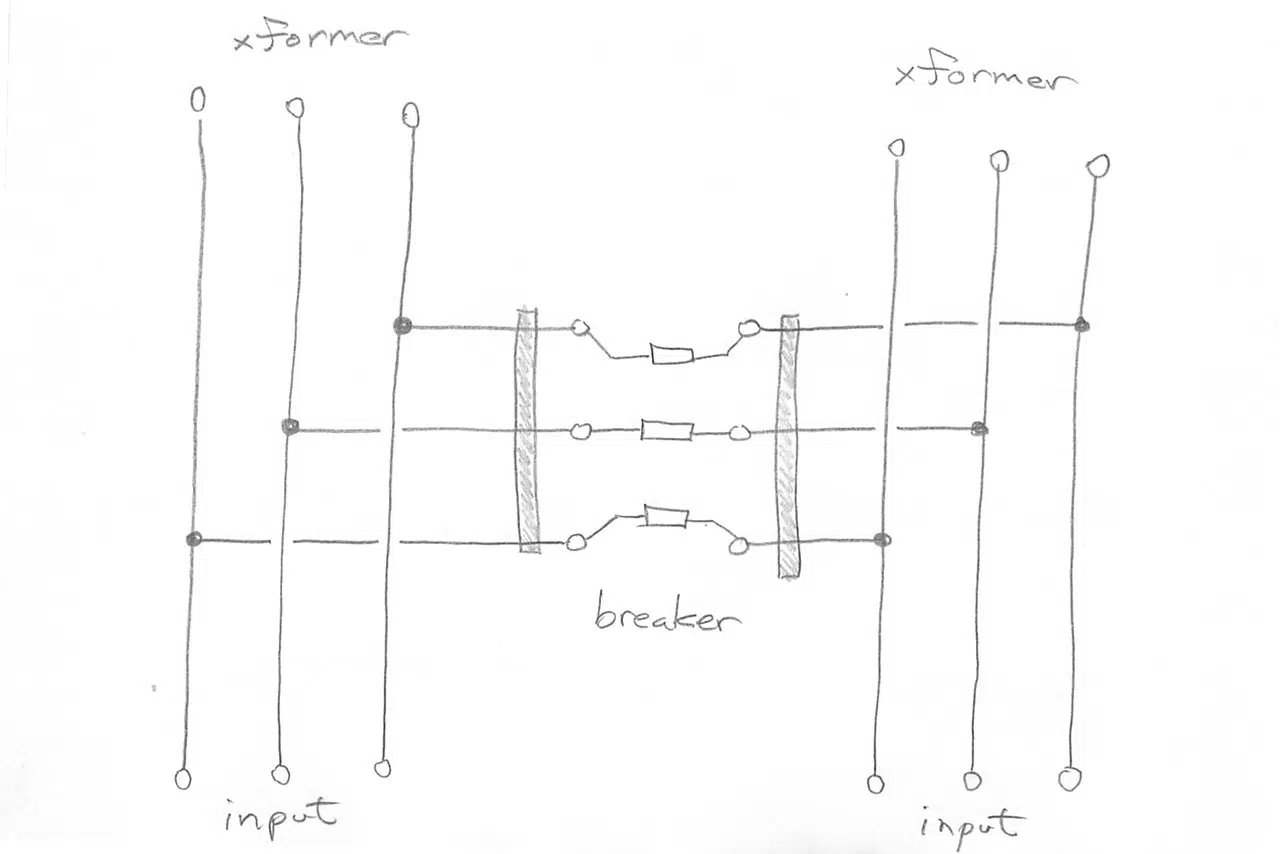 xformer
xformer
breaker
input
input